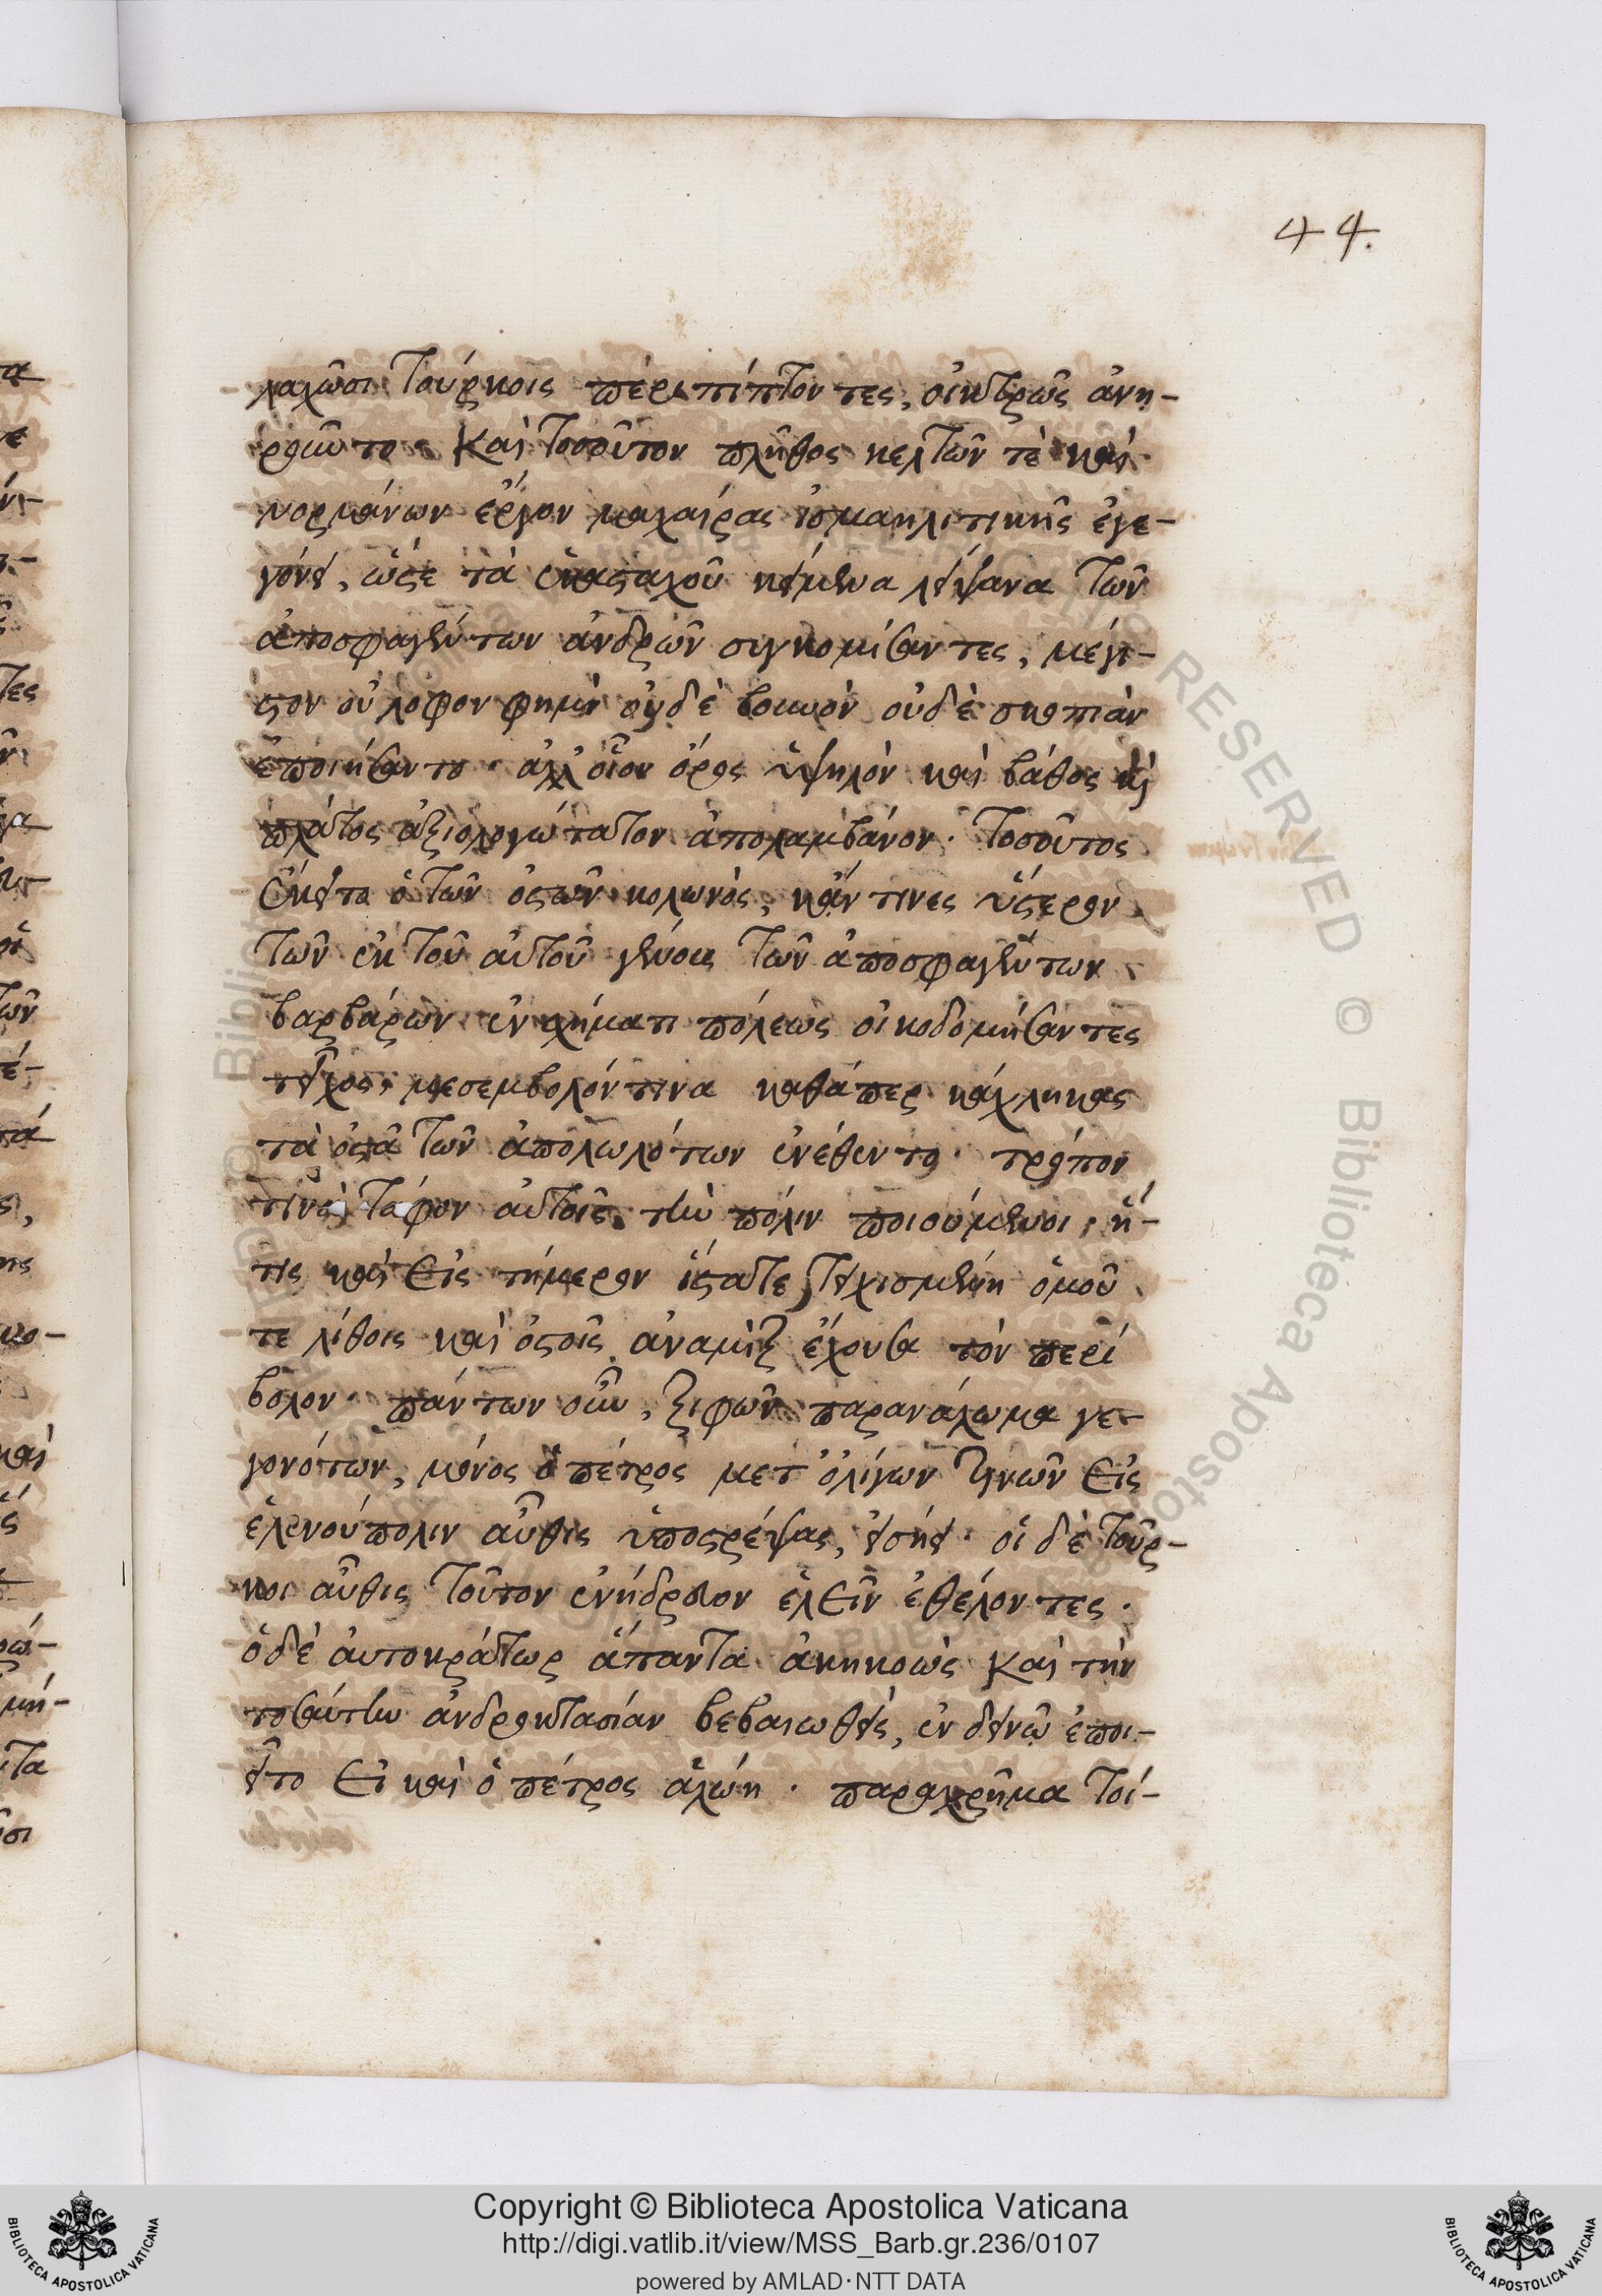 44.
λαχῶσι Τούρκοις περιπίπτοντες, οἰκτρῶς ἀνη-
ροῦντο. Καὶ τοσοῦτον πλῆθος κελτῶν τὲ καὶ
νορμάνων ἔργον μαχαίρας ἰσμαηλιτικῆς ἐγε-
γόνει, ὥστε τὰ ἑκασταχοῦ κείμενα λείψανα τῶν
ἀποσφαγέντων ἀνδρῶν συγκομίσαντες, μέγι-
στον οὐ λόφον φημὶ οὐδὲ βουνὸν οὐδὲ σκοπιὰν
ἐποιήσαντο. ἀλλ' οἷον ὄρος ὑψηλὸν καὶ βάθος καὶ
πλάτος ἀξιολογώτατον ἀπολαμβάνον. Τοσοῦτος
ἔκειτο ὁ τῶν ὀστῶν κολωνὸς, κἄν τινες ὕστερον
τῶν ἐκ τοῦ αὐτοῦ γένους τῶν ἀποσφαγέντων
βαρβάρων ἐν σχήματι πόλεως οἰκοδομήσαντες
τεῖχος, μεσεμβολόν τινα καθάπερ κάχληκας
τὰ ὀστᾶ τῶν ἀπολωλότων ἐνέθεντο. τρόπον
τινὰ τάφον αὐτοῖς τὴν πόλιν ποιούμενοι, ἥ-
τις καὶ εἰς τήμερον ἵσταται τετειχισμένη ὁμοῦ
τε λίθοις καὶ ὀστοῖς ἀναμὶξ ἔχουσα τὸν περί
βολον. πάντων οὖν, ξιφῶν παρανάλωμα γε-
γονότων, μόνος ὁ πέτρος μετ' ὀλίγων τινῶν εἰς
ἑλενούπολιν αὖθις ὑποστρέψας, εἰσήει. οἱ δὲ Τοῦρ-
κοι αὖθις τοῦτον ἐνήδρευον ἑλεῖν ἐθέλοντες.
ὁ δὲ αὐτοκράτωρ ἅπαντα ἀκηκοὼς καὶ τὴν
τοσαύτην ἀνδροκτασίαν βεβαιωθεὶς, ἐν δεινῷ ἐποι-
εῖτο εἰ καὶ ὁ πέτρος ἁλώῃ. παραχρῆμα τοί-
Copyright © Biblioteca Apostolica Vaticana
http://digi.vatlib.it/view/MSS_Barb.gr.236/0107
powered by AMLAD·NTT DATA